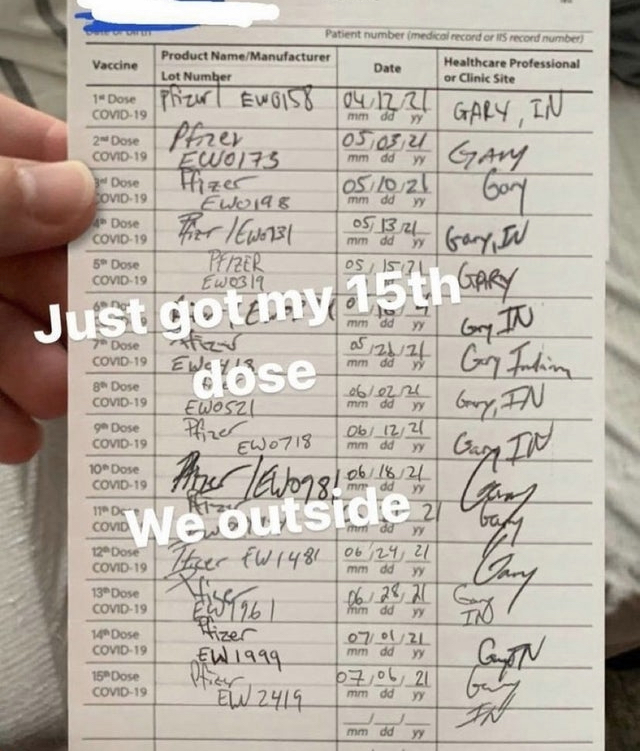 Patient number (medical record or IIS record number)
Vaccine
Product Name/Manufacturer
Lot Number
Date
Healthcare Professional
or Clinic Site
1st Dose
COVID-19
Pfizer EW0158
04/12/21
mm dd yy
GARY, IN
2nd Dose
COVID-19
Pfizer
EW0173
05/03/21
mm dd yy
GARY
Dose
COVID-19
Pfizer
EW0198
05/10/21
mm dd yy
Gary
Dose
COVID-19
/EW0731
05/13/21
mm dd yy
Gary, IN
5th Dose
COVID-19
PFIZER
EW0319
05/15/21
GARY
Just got my 15th
mm dd yy
Gary IN
7th Dose
COVID-19
05/26/21
mm dd yy
Gary Indiana
dose
8th Dose
COVID-19
EW0521
06/02/21
mm dd yy
Gary, IN
9th Dose
COVID-19
Pfizer
EW0718
06/12/21
mm dd yy
Gary IN
10th Dose
COVID-19
Pfizer/EW0981
06/18/21
mm dd yy
Gary
11th
COVID
21
mm dd yy
Gary
We outside
12th Dose
COVID-19
Pfizer EW1481
06/24/21
mm dd yy
Gary
13th Dose
COVID-19
Pfizer
EW1961
06/28/21
mm dd yy
Gary
IN
14th Dose
COVID-19
Pfizer
EW1999
07/01/21
mm dd yy
Gary IN
15th Dose
COVID-19
Pfizer
EW2419
07/06/21
mm dd yy
Gary
IN
mm dd yy